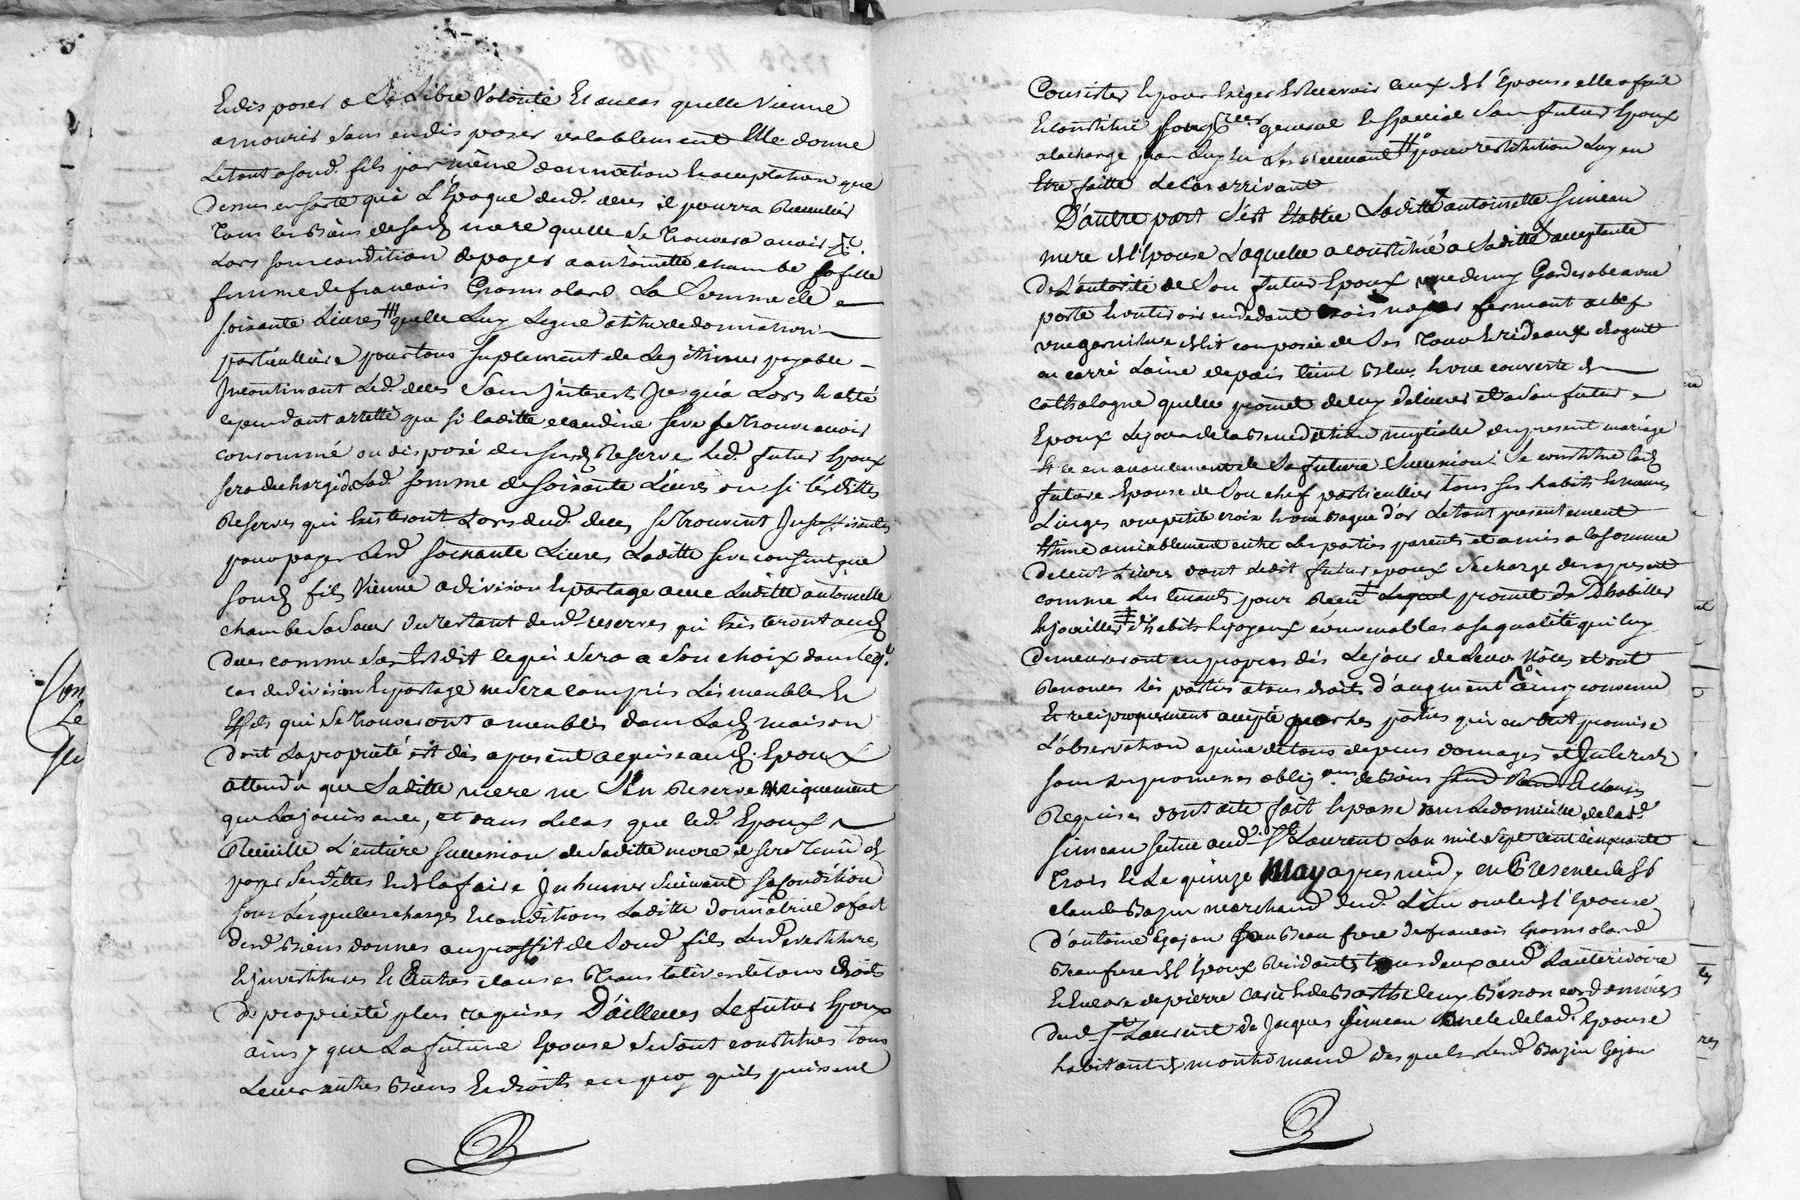 En disposer a Sa Libre Volonté Et au cas quelle Vienne
a mourir Sans en disposer valablement Elle donne
Le tout a soud. fils par même donnation & acceptation que
dessus en sorte qu'à L'Epoque dud. deces il pourra Recueüillir
Tous les Biens de sad. mere quelle Se Trouvera avoir
Lors sous condition de payer a antoinette chambe sa fille
femme de francois Gromolard La Somme de
soixante Livres quelle Luy Legue a titre de donnation
particulliere pour tous suplement de Legitimes payable
Incontinant Led. deces Sans Interests Jusqu'a Lors & a été
cependant arretté que si laditte claudine seve se trouve avoir
consommé ou disposé desusd. Reserves Led. futur Epoux
sera dechargé de Lad. somme de soixante Livres ou si lesdittes
Reserves qui Existeront Lors dud. deces se trouvent Insuffisantes
pour payer Lesd. soixante Livres Laditte seve consent que
soud. fils Vienne a division & partage avec Laditte antoinette
chambe Sa Soeur du restant desd. reserves qui Existeront aud.
deces comme Sus Est dit ce qui Sera a Son choix dans Leq.
cas de division & partage ne Sera compris Les meubles Et
Effets qui Se Trouveront ameublés dans Lad. maison
dont La proprieté est dès a present acquise aud. Epoux
attendu que Laditte mere ne S'en Reserve uniquement
que La joüissance, et dans Le cas que led. Epoux
Recüille L'entiere succession de Laditte mere il sera Tenu de
payer Ses dettes & de la faire Inhumer Suivant Sa Condition
sous Lesquelles charges & conditions Laditte donnatrice a fait
desd. Biens donnés au proffit de Soud. fils Les devestitures
& Investitures & Autres clauses Translatives de tous droits
de proprieté plus requises D'ailleurs Le futur Epoux
ainsy que La future Epouse Se Sont constitués tous
Leurs autres Biens & droits en quoy qu'ils puissent
Consister & pour Exiger & Recevoir ceux de l'Epouse elle a fait
& constitué general & special Son futur Epoux
a la charge par Luy pour restitution Luy en
Etre faitte Le Cas arrivant
D'autre part S'est Etablie Laditte antoinette Simean
mere de l'Epouse Laquelle a constitué a Laditte acceptante
de L'autorité de Son futur Epoux une garderobe a une
porte & un tiroir en dedant Bois noyer fermant a clef
une garniture de lit composée de Ses Tour & rideaux
en carré Laine & une couverte de
cathalogne quelle promet de luy delivrer et a Son futur
Epoux Le jour de la Benediction nuptialle du present mariage
& ce en avancement de Sa future Succession. Se constitue Lad.
future Epouse de Son chef particullier tous ses habits
Linges une petite croix & une Bague d'or Le tout presentement
Estimé amiablement entre Les parties parents et amis a la somme
de cent Livres dont Ledit futur epoux Se charge des a present
comme Les tenants pour Receu Lequel promet de L'habiller
& joüailler d'habits & joyaux convenables a Sa qualité qui luy
demeureront en propres dès Le jour de Leurs Nôces et ont
Renoncés Les parties a tous droits d'augment ainsy convenu
Et reciproquement accepté par Les parties qui en ont promise
L'observation a peine de tous depens domages et Interests
sous Les promesses oblig.ons de Biens & clauses
Requises dont acte fait & passé dans Le domicille de lad.
Simean scitué aud. St Laurent L'an mil sept cent cinquante
Trois & Le quinze May apres midy en Presence de Sr
claude Bazin marchand dud. Lieu oncle de l'Epouse
d'antoine Gajon Son Beau frere de francois Gromolard
Beaufrere de l'Epoux Residants tous deux aud.
& Encore de pierre & de Barthelemy Besson cordonniers
dud. St Laurent de Jacques Simean oncle de lad. Epouse
habitant de montromand desquels Lesd. Bazin Gajon